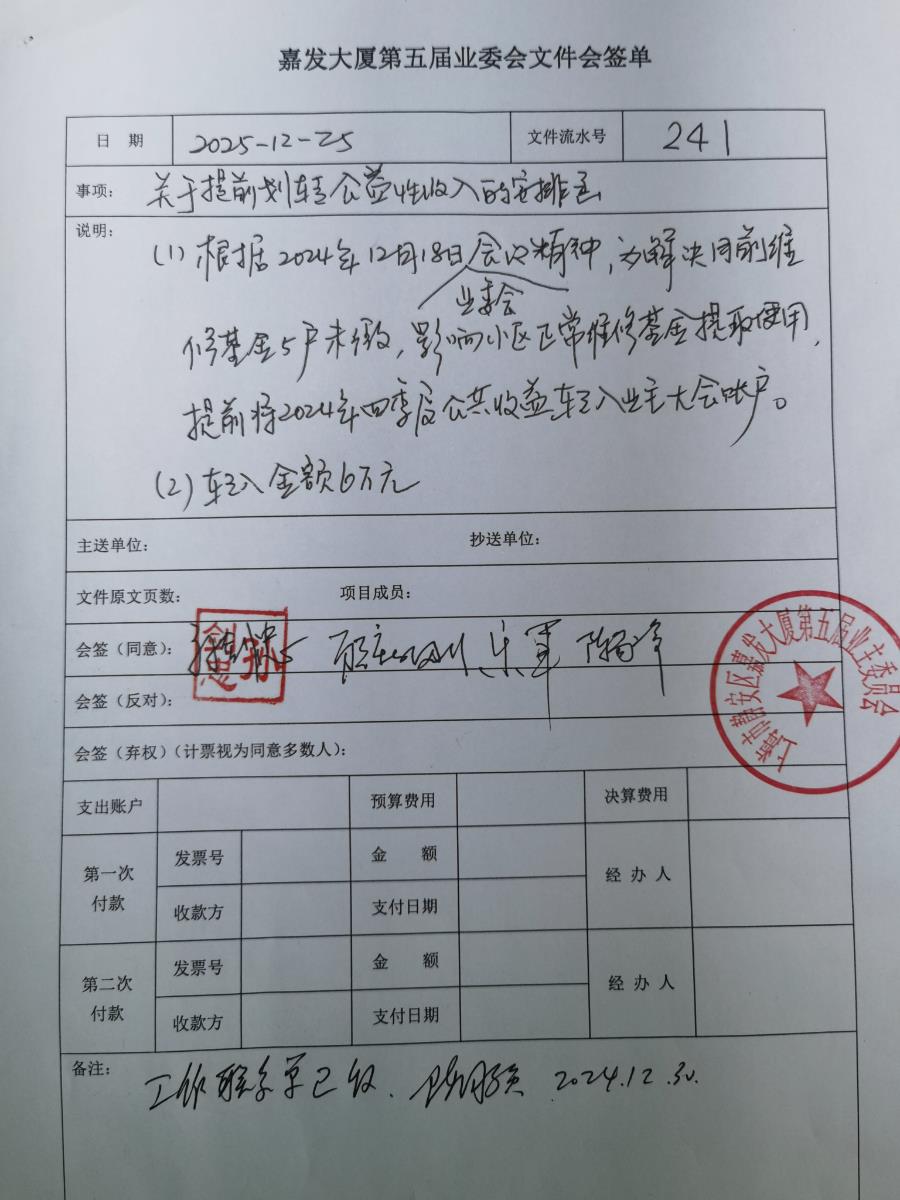 嘉发大厦第五届业委会文件会签单
日 期 2025-12-25 文件流水号 241
事项: 关于提前划转公益性收入的安排
说明: (1) 根据2024年12月18日会议精神,为解决目前维
业委会
修基金5户未缴,影响小区正常维修基金提取使用,
提前将2024年四季度公共收益转入业主大会账户。
(2) 转入金额6万元
主送单位: 抄送单位:
文件原文页数: 项目成员:
会签(同意):
会签(反对):
会签(弃权)(计票视为同意多数人):
上海市静安区嘉发大厦第五届业主委员会
支出账户 预算费用 决算费用
第一次付款 发票号 金 额 经 办 人
收款方 支付日期
第二次付款 发票号 金 额 经 办 人
收款方 支付日期
备注: 工作联系单已收、 2024.12.30.